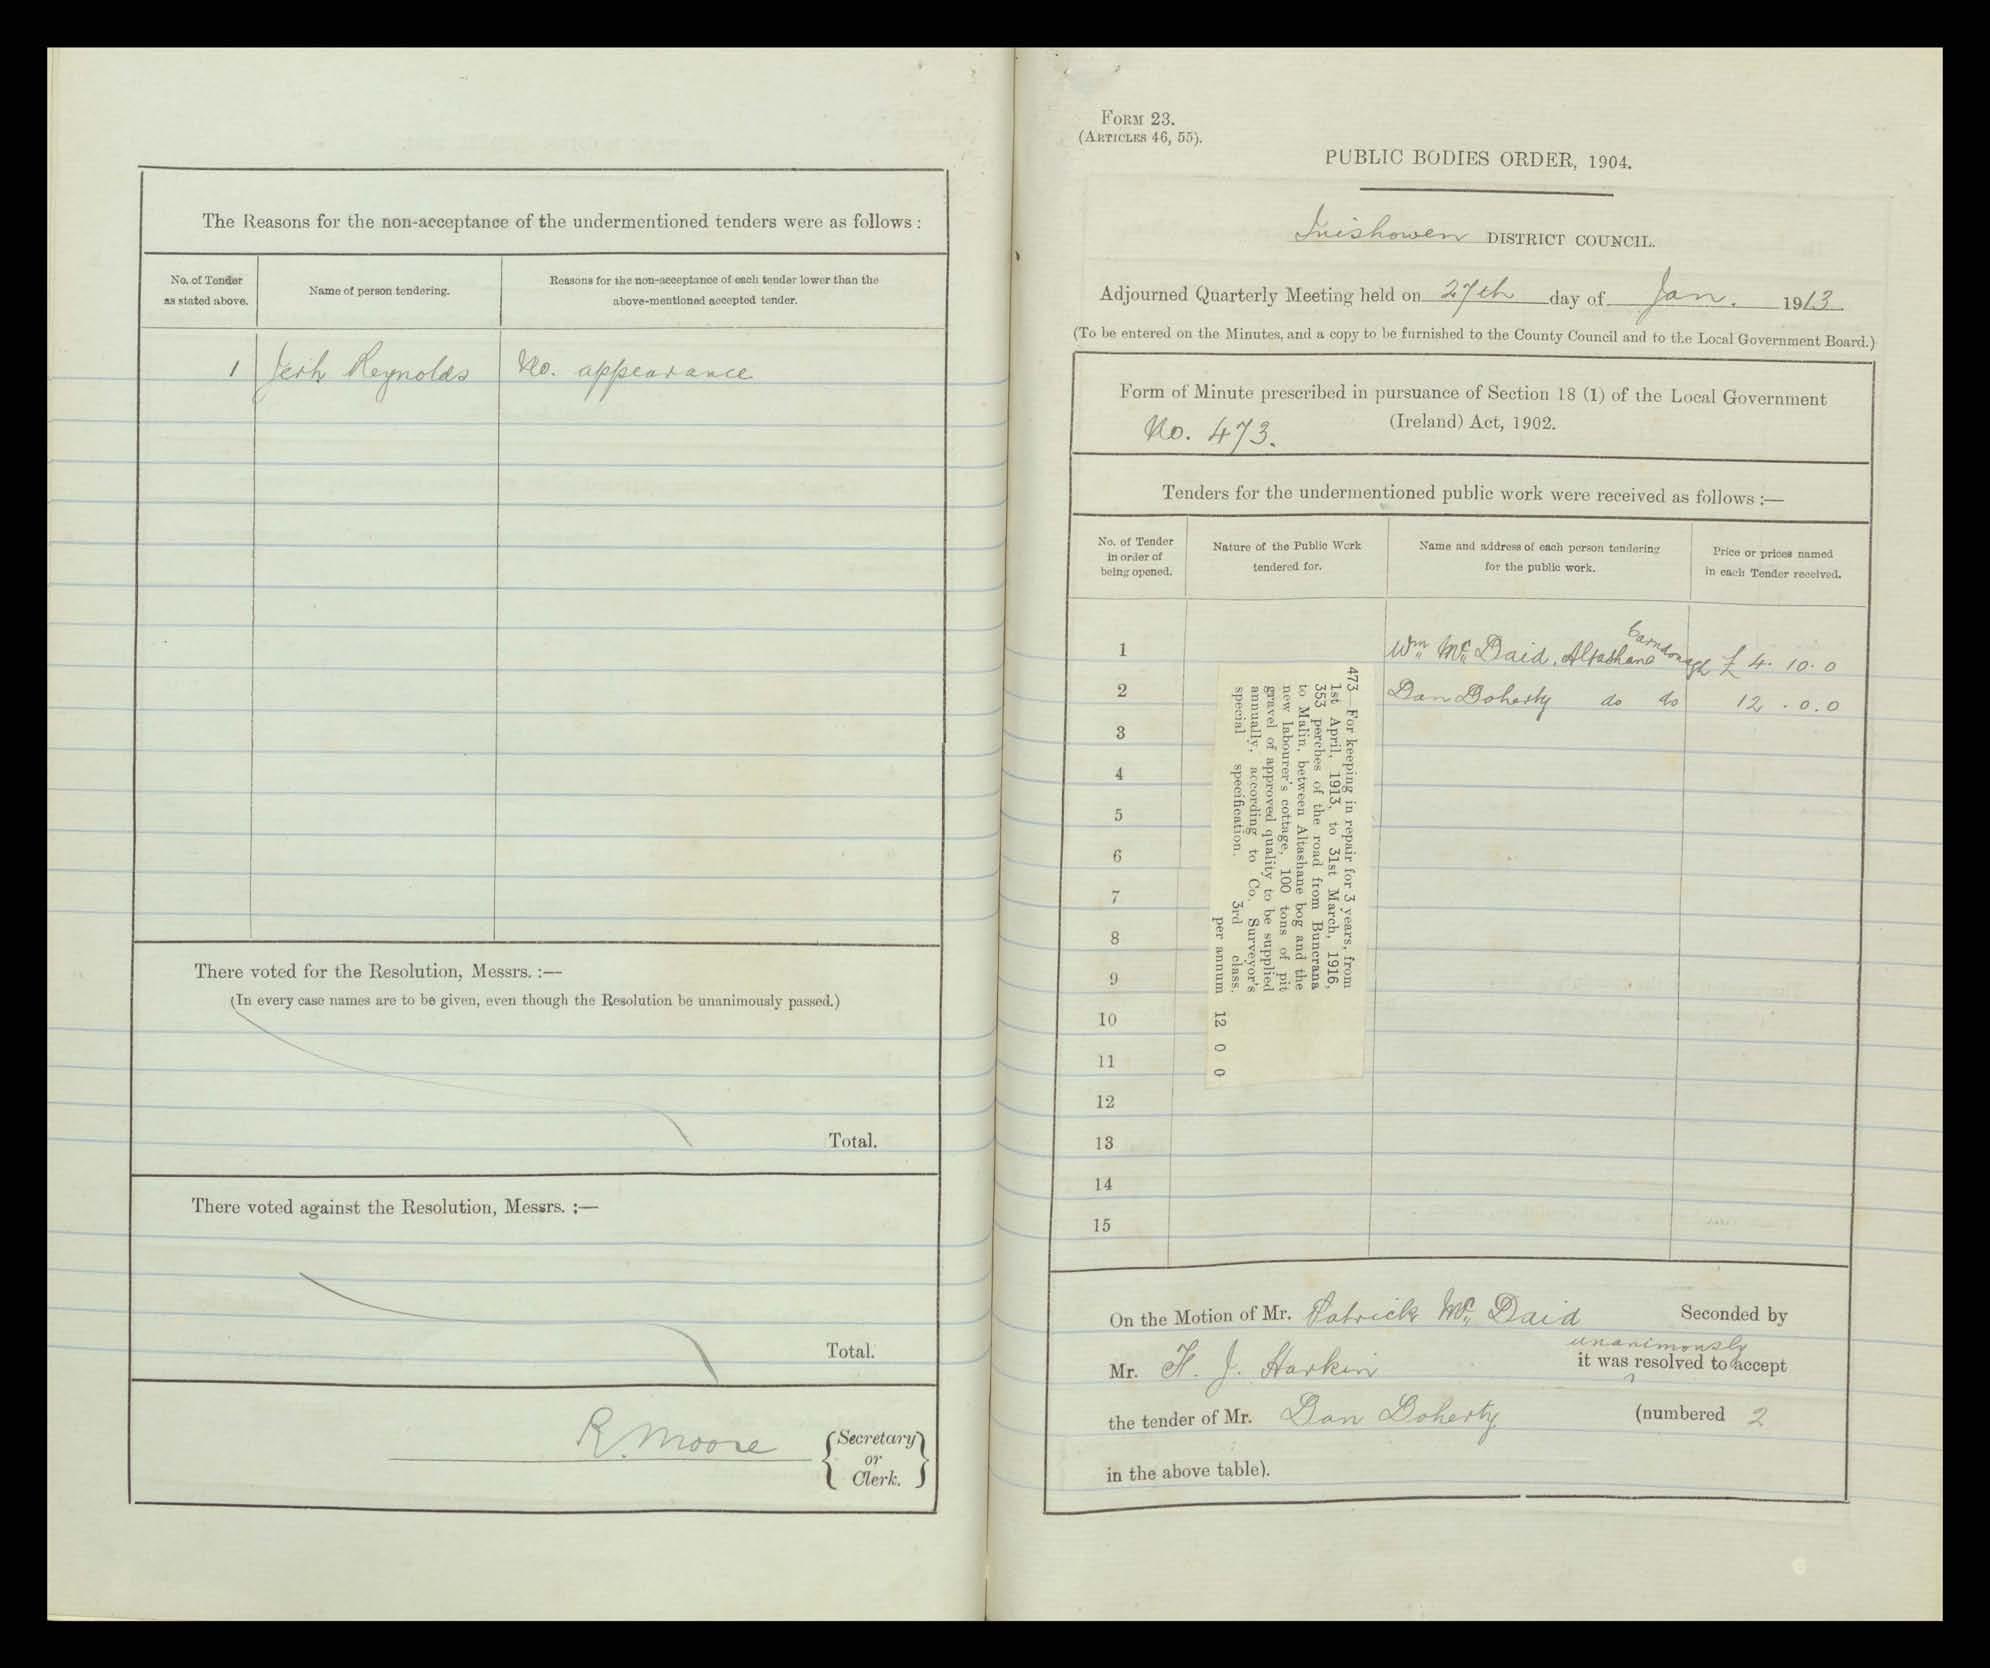 The Reasons for the non-acceptance of the undermentioned tenders were as follows :
No. of Tender as stated above.
Name of person tendering.
Reasons for the non-acceptance of each tender lower than the above-mentioned accepted tender.
1 Jerh Reynolds No. appearance
There voted for the Resolution, Messrs. :—
(In every case names are to be given, even though the Resolution be unanimously passed.)
Total.
There voted against the Resolution, Messrs. :—
Total.
R. Moore {Secretary or Clerk.}
FORM 23.
(ARTICLES 46, 55).
PUBLIC BODIES ORDER, 1904.
Inishowen DISTRICT COUNCIL.
Adjourned Quarterly Meeting held on 27th day of Jan. 1913
(To be entered on the Minutes, and a copy to be furnished to the County Council and to the Local Government Board.)
Form of Minute prescribed in pursuance of Section 18 (1) of the Local Government
(Ireland) Act, 1902.
No. 473.
Tenders for the undermentioned public work were received as follows :—
No. of Tender in order of being opened.
Nature of the Public Work tendered for.
Name and address of each person tendering for the public work.
Price or prices named in each Tender received.
1 Wm McDaid, Altashane Carndonagh £ 4. 10. 0
2 Dan Doherty do do 12 . 0 . 0
3
4
5
6
7
8
9
10
11
12
13
14
15
473—For keeping in repair for 3 years, from
1st April, 1913, to 31st March, 1916,
353 perches of the road from Buncrana
to Malin, between Altashane bog and the
new labourer's cottage, 100 tons of pit
gravel of approved quality to be supplied
annually, according to Co. Surveyor's
special specification. 3rd class.
per annum 12 0 0
On the Motion of Mr. Patrick McDaid Seconded by
unanimously
Mr. H. J. Harkin it was resolved to accept
the tender of Mr. Dan Doherty (numbered 2
in the above table).